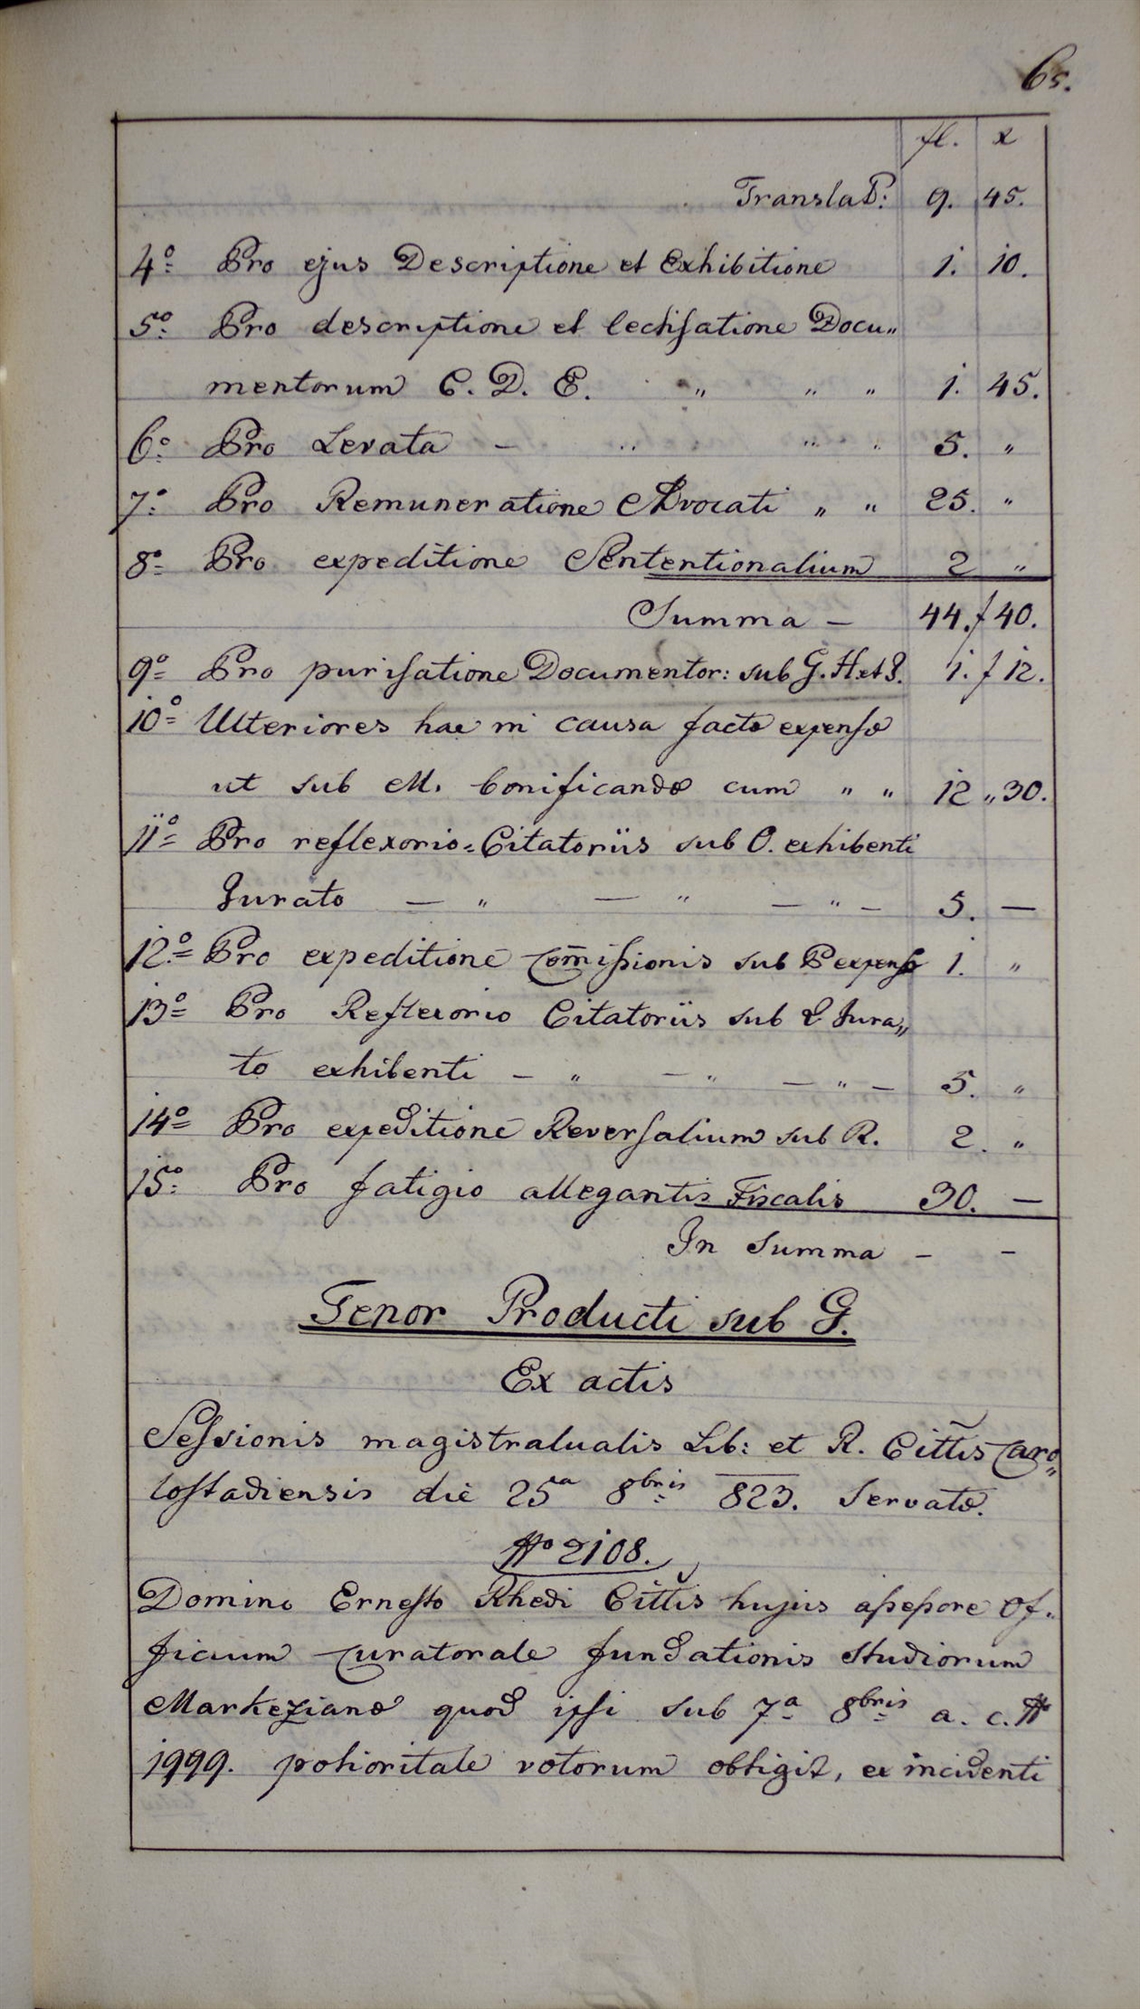 65.
fl. x
Translat: 9. 45.
4º Pro ejus Descriptione et Exhibitione 1. 10.
5º Pro descriptione et lectisatione Docu„
mentorum C. D. E. „ „ „ 1. 45.
6º Pro Levata – „ „ „ 5. „
7º Pro Remuneratione Advocati „ „ 25. „
8º Pro expeditione Sententionalium 2 „
Summa – 44. f 40.
9º Pro purisatione Documentor: sub G. H et I. 1. f 12.
10º Ulteriores hac in causa factæ expensæ
ut sub M. bonificandæ cum „ „ 12 „ 30.
11º Pro reflexorio=Citatoriis sub O. exhibenti
Jurato — „ — „ — „ — 5. —
12º Pro expeditione Com̄issionis sub P expensæ 1. „
13º Pro Reflexorio Citatoriis sub Q Jura„
to exhibenti – „ – „ – „ – 5. „
14º Pro expeditione Reversalium sub R. 2. „
15º Pro fatigio allegantis Fiscalis 30. —
In Summa – –
Tenor Producti sub G.
Ex actis
Sessionis magistratualis Lib: et R. Cittis Caro„
lostadiensis die 25ª 8bris 823. Servatæ.
Nº 2108.
Domino Ernesto Rhedi Cittis hujus assessore Of„
ficium Curatorale fundationis Studiorum
Markezianæ quod ipsi sub 7ª 8bris a. c. Nº
1999. potioritate votorum obtigit, ex incidenti